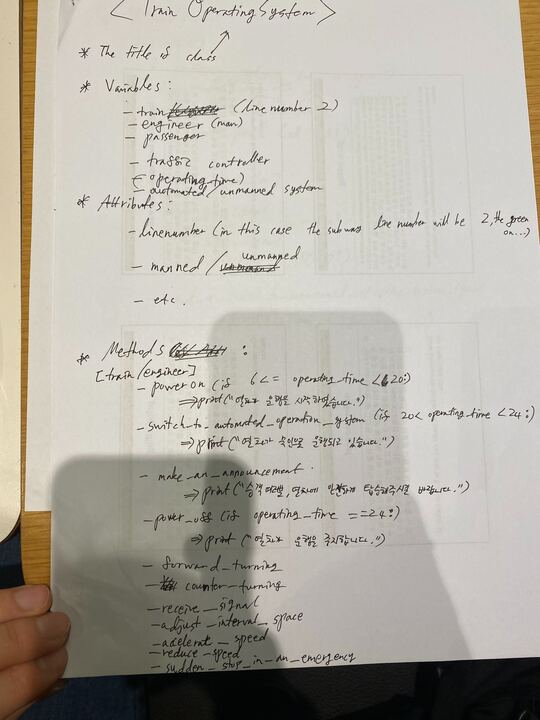 < Train Operating System >
* The title is class
* Variables :
- train (line number 2)
- engineer (man)
- passenger
- traffic controller
(- operating_time)
- automated / unmanned system
* Attributes :
- linenumber (in this case the subway line number will be 2, the green
on...)
- manned / unmanned
- etc.
* Methods :
[train/engineer]
- power on (if 6 <= operating_time < 20:)
⇒ print("열차가 운행을 시작하였습니다.")
- switch_to_automated_operation_system (if 20 < operating_time < 24:)
⇒ print("열차가 무인으로 운행되고 있습니다.")
- make_an_announcement.
⇒ print("승객여러분, 열차에 안전하게 탑승해주시길 바랍니다.")
- power_off (if operating_time == 24:)
⇒ print("열차가 운행을 중지합니다.")
- forward_turning
- counter_turning
- receive_signal
- adjust_interval_space
- acelerate_speed
- reduce_speed
- sudden_stop_in_an_emergency